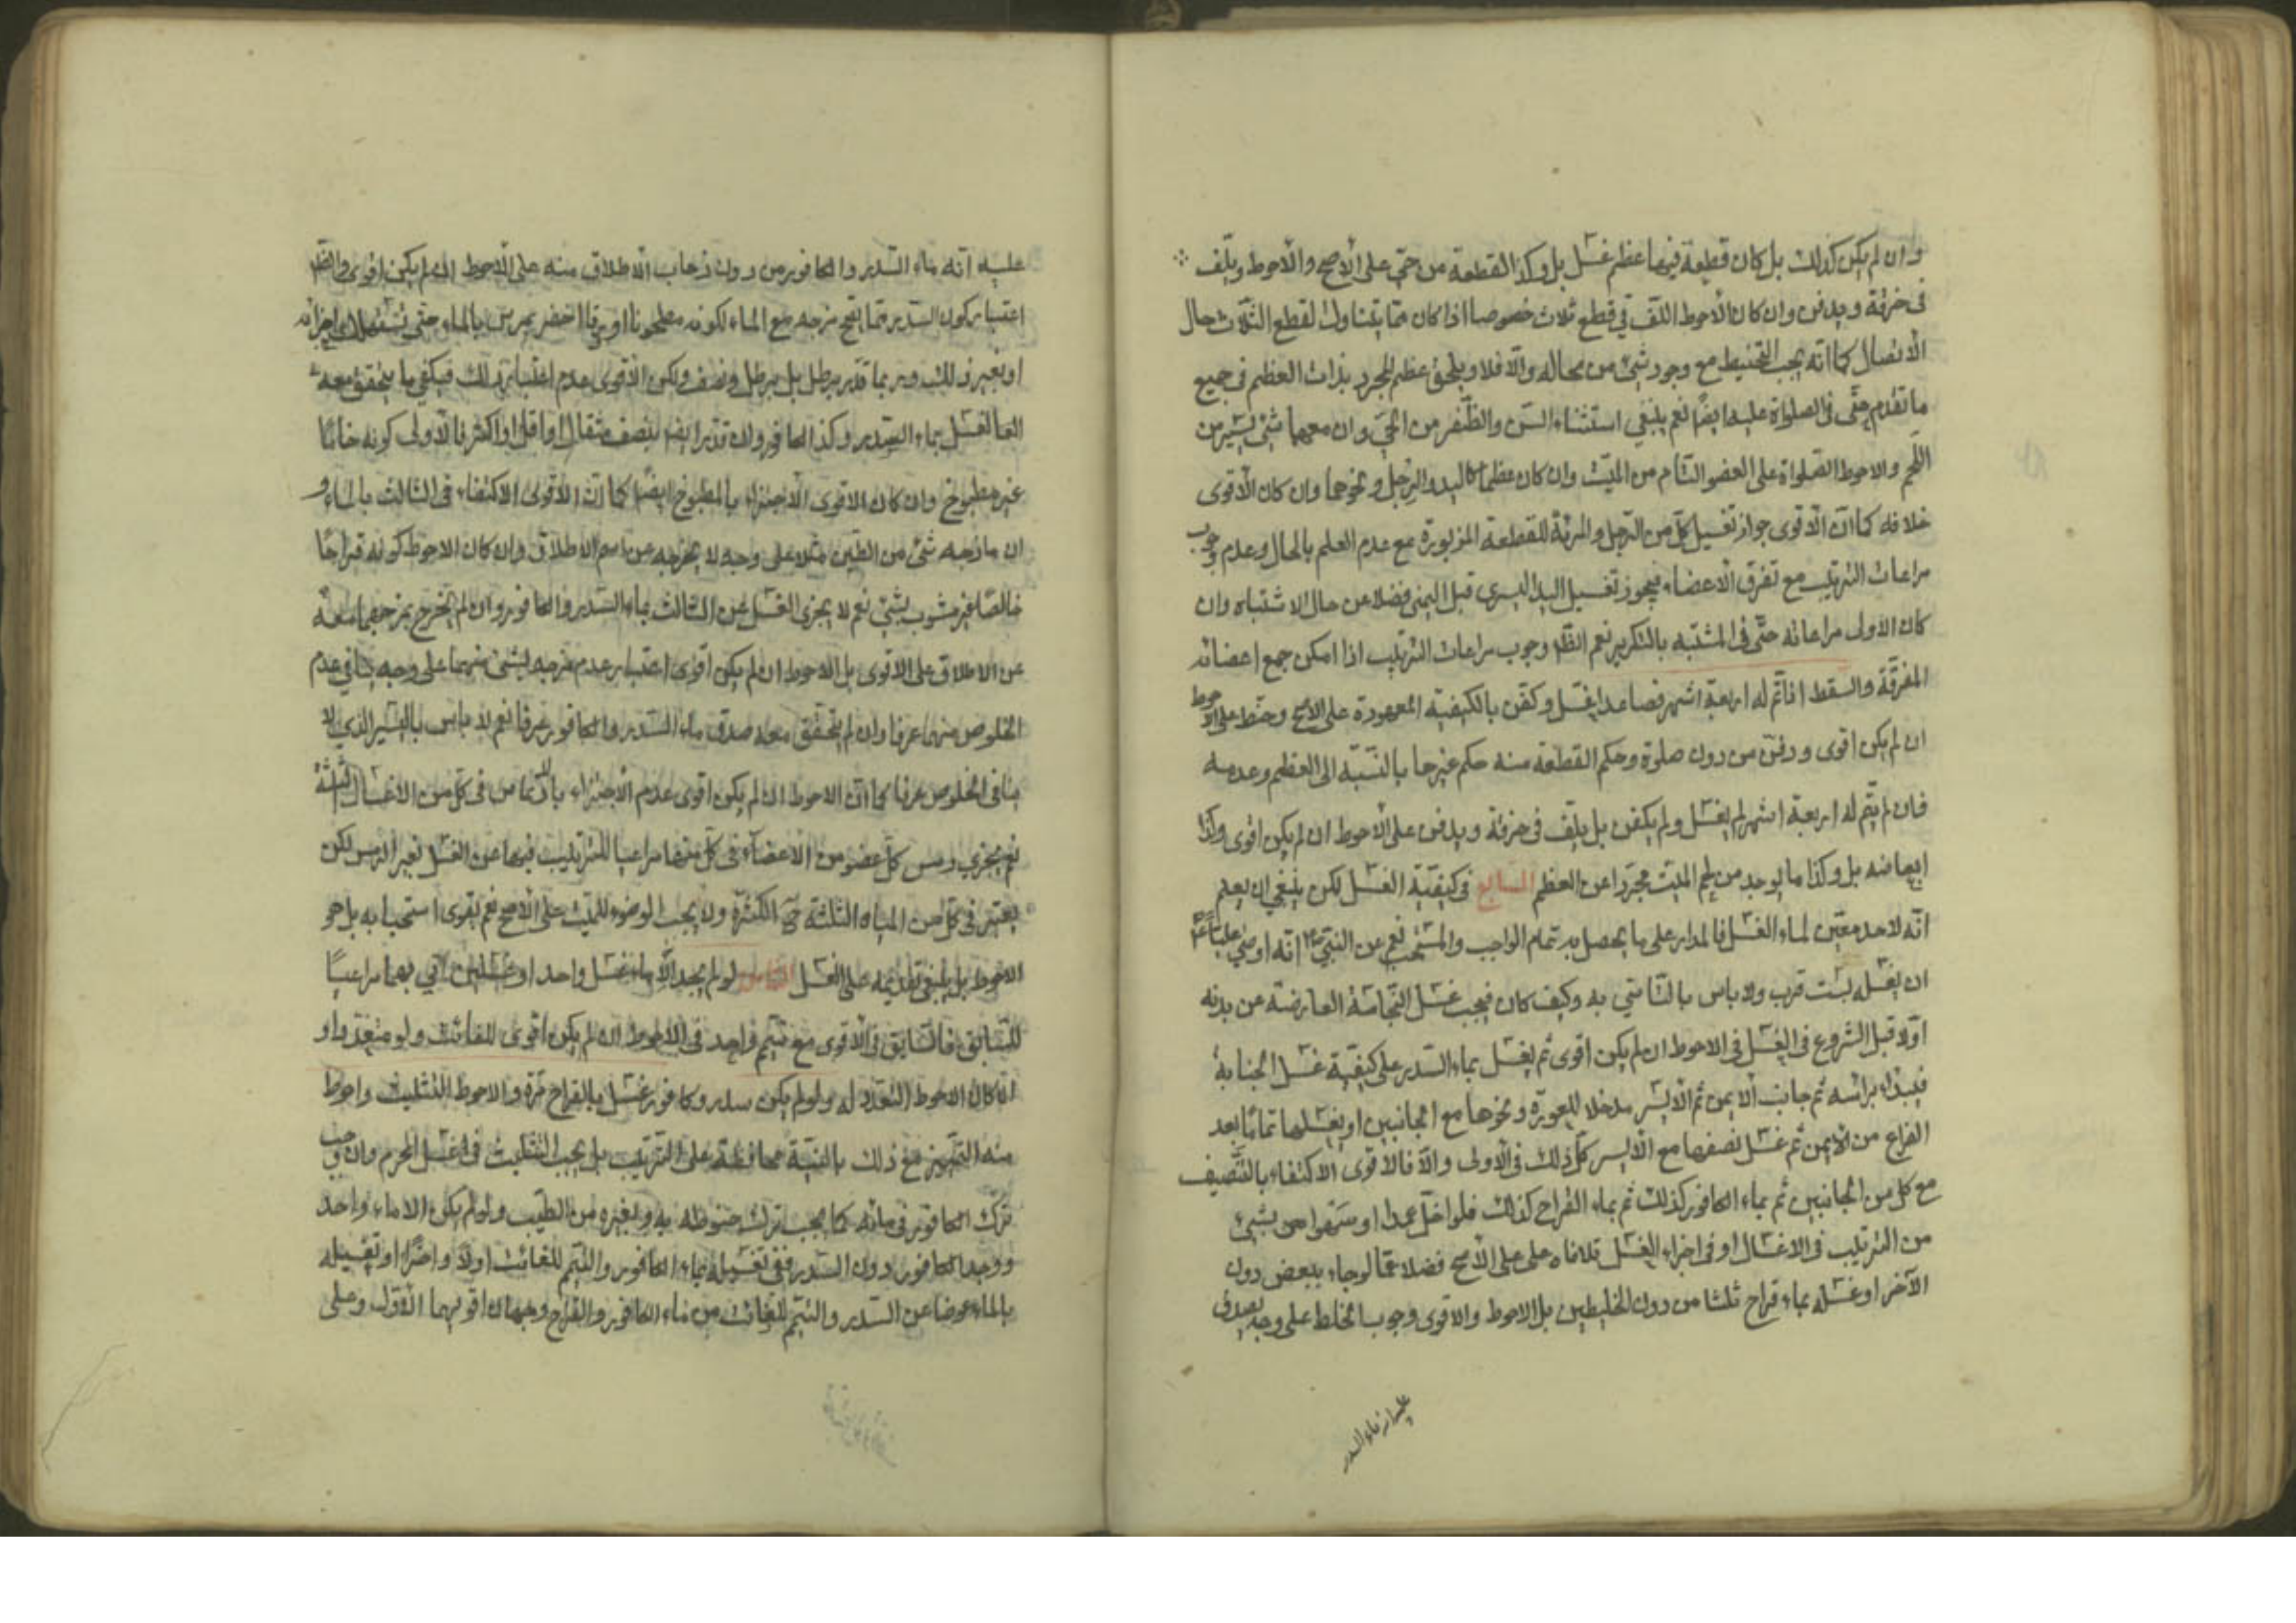 وان لم يكن كذلك بل كان قطعة فيها عظم غسل بل وكذا القطعة من حيّ على الأصح والأحوط ويلف
في خرقة ويدفن وان كان الأحوط اللف في قطع ثلاث خصوصا اذا كان مما يتناول القطع الثلاث حال
الاتصال كما انه يجب التحنيط مع وجود شيء من محاله والا فلا ويلحق عظم المجرد بذات العظم في جميع
ما تقدم حتى في الصلواة عليه ايضًا نعم ينبغي استثناء السن والظفر من الحيّ وان معهما شيء يسير من
اللحم والاحوط الصلواة على العضو التام من الميّت وان كان عظما كاليد والرجل ونحوهما وان كان الأقوى
خلافه كما انّ الأقوى جواز تغسيل كل من الرجل والمرئة للقطعة المزبورة مع عدم العلم بالحال وعدم وجوب
مراعات الترتيب مع تفرق الأعضاء فيجوز تغسيل اليد اليسرى قبل اليمنى فضلا عن حال الاشتباه وان
كان الاولى مراعاته حتّى في المشتبه بالتكرير نعم الظ وجوب مراعات الترتيب اذا امكن جمع اعضائه
المفرقة والسقط اذا تم له اربعة اشهر فصاعدا يغسل وكفن بالكيفية المعهودة على الاصح وحنط على الأحوط
ان لم يكن اقوى ودفن من دون صلوة وحكم القطعة منه حكم غيرها بالنسبة الى العظم وعدمه
فان لم يتم له اربعة اشهر لم يغسل ولم يكفن بل يلف في خرقة ويدفن على الأحوط ان لم يكن اقوى وكذا
ابعاضه بل وكذا ما يوجد من لحم الميت مجردا عن العظم السابع في كيفية الغسل لكن ينبغي ان يعلم
انّه لا حد معيّن لماء الغسل فالمدار على ما يحصل به تمام الواجب والمستحب نعم عن النبيّ ص انه اوصى عليًا ع
ان يغسله بست قرب ولا باس بالتاسّي به وكيف كان فيجب غسل النجاسة العارضة عن بدنه
اوّلا قبل الشروع في الغسل في الاحوط ان لم يكن اقوى ثم يغسل بماء السدر على كيفية غسل الجنابة
فيبدأ برأسه ثم جانب الايمن ثم الأيسر مدخلا للعورة ونحوها مع الجانبين او يغسلها تمامًا بعد
الفراغ من الأيمن ثم غسل نصفها مع الأيسر كل ذلك في الأولى والا فالأقوى الاكتفاء بالتنصيف
مع كل من الجانبين ثم بماء الكافور كذلك ثم بماء القراح كذلك فلو اخلّ عمدا او سهوا بشيء
من الترتيب في الاغسال او في اجزاء الغسل تلافاه على الأصح فضلا عما لو جاء ببعض دون
الآخر او غسله بماء قراح ثلثا من دون الخليطين بل الاحوط والاقوى وجوب الخلط على وجه يصدق
عليه انه ماء السدر
عليه انه ماء السدر والكافور من دون ذهاب الاطلاق منه على الأحوط ان لم يكن اقوى والظ
اعتبار كون السدر مما يقع مزجه مع الماء لكونه مطحونا او ورقا اخضر يمرس بالماء حتى اجزائه
او بغير ذلك وربما قدّر برطل بل برطل ونصف ولكن الاقوى عدم اعتبار ذلك فيكفي ما يتحقق معه
الغسل بماء السدر وكذا الكافور وان قدّر ايضا بنصف مثقال او اقل او اكثر فالأولى كونه خامًا
غير مطبوخ وان كان الاقوى الاجتزاء بالمطبوخ ايضًا كما انّ الاقوى الاكتفاء في الثالث بالماء و
ان مازجه شيء من الطين مثلا على وجه لا يخرجه عن اسم الاطلاق وان كان الاحوط كونه قراحًا
خالصًا غير مشوب بشيء نعم لا يجزى الغسل عن الثالث بماء السدر والكافور وان لم يخرج بمزجهما معه
عن الاطلاق على الاقوى بل الاحوط ان لم يكن اقوى اعتبار عدم مزجه بشيء منهما على وجه ينافي عدم
الخلوص منهما عرفا وان لم يتحقق معه صدق ماء السدر والكافور عرفا نعم لا باس باليسير الذي لا
ينافي الخلوص عرفا كما انّ الاحوط ان لم يكن اقوى عدم الاجتزاء بالارتماس في كل من الاغسال الثلثة
نعم يجزي رمس كل عضو من الاعضاء في كل منها مراعيا للترتيب فيها عن الغسل بغير الرمس لكن
يعتبر في كل من المياه الثلثة الكثرة ولا يجب الوضوء للميت على الأصح نعم يقوى استحبابه بل هو
الاحوط بل ينبغي تقديمه على الغسل الثامن لو لم يجد الا ماء غسل واحد او غسلين اتي بهما مراعيًا
للسابق فالسابق في الأقوى مع تيمم واحد في الاحوط ان لم يكن اقوى للفائت ولو متعددا و
ان كان الاحوط التعدد له ولو لم يكن سدر وكافور غسل بالقراح مرة والاحوط التثليث واحوط
منه التمييز مع ذلك بالنية محافظة على الترتيب بل يجب التثليث في غسل المحرم وان وجب
ترك الكافور في مائه كما يجب ترك حنوطه به وبغيره من الطيب ولو لم يكن الا ماء واحد
ووجد الكافور دون السدر ففي تغسيله بماء الكافور والتيمم للفائت اولا واخرًا او تغسيله
بالماء عوضا عن السدر والتيمم للفائت من ماء الكافور والقراح وجهان اقويهما الأول وعلى